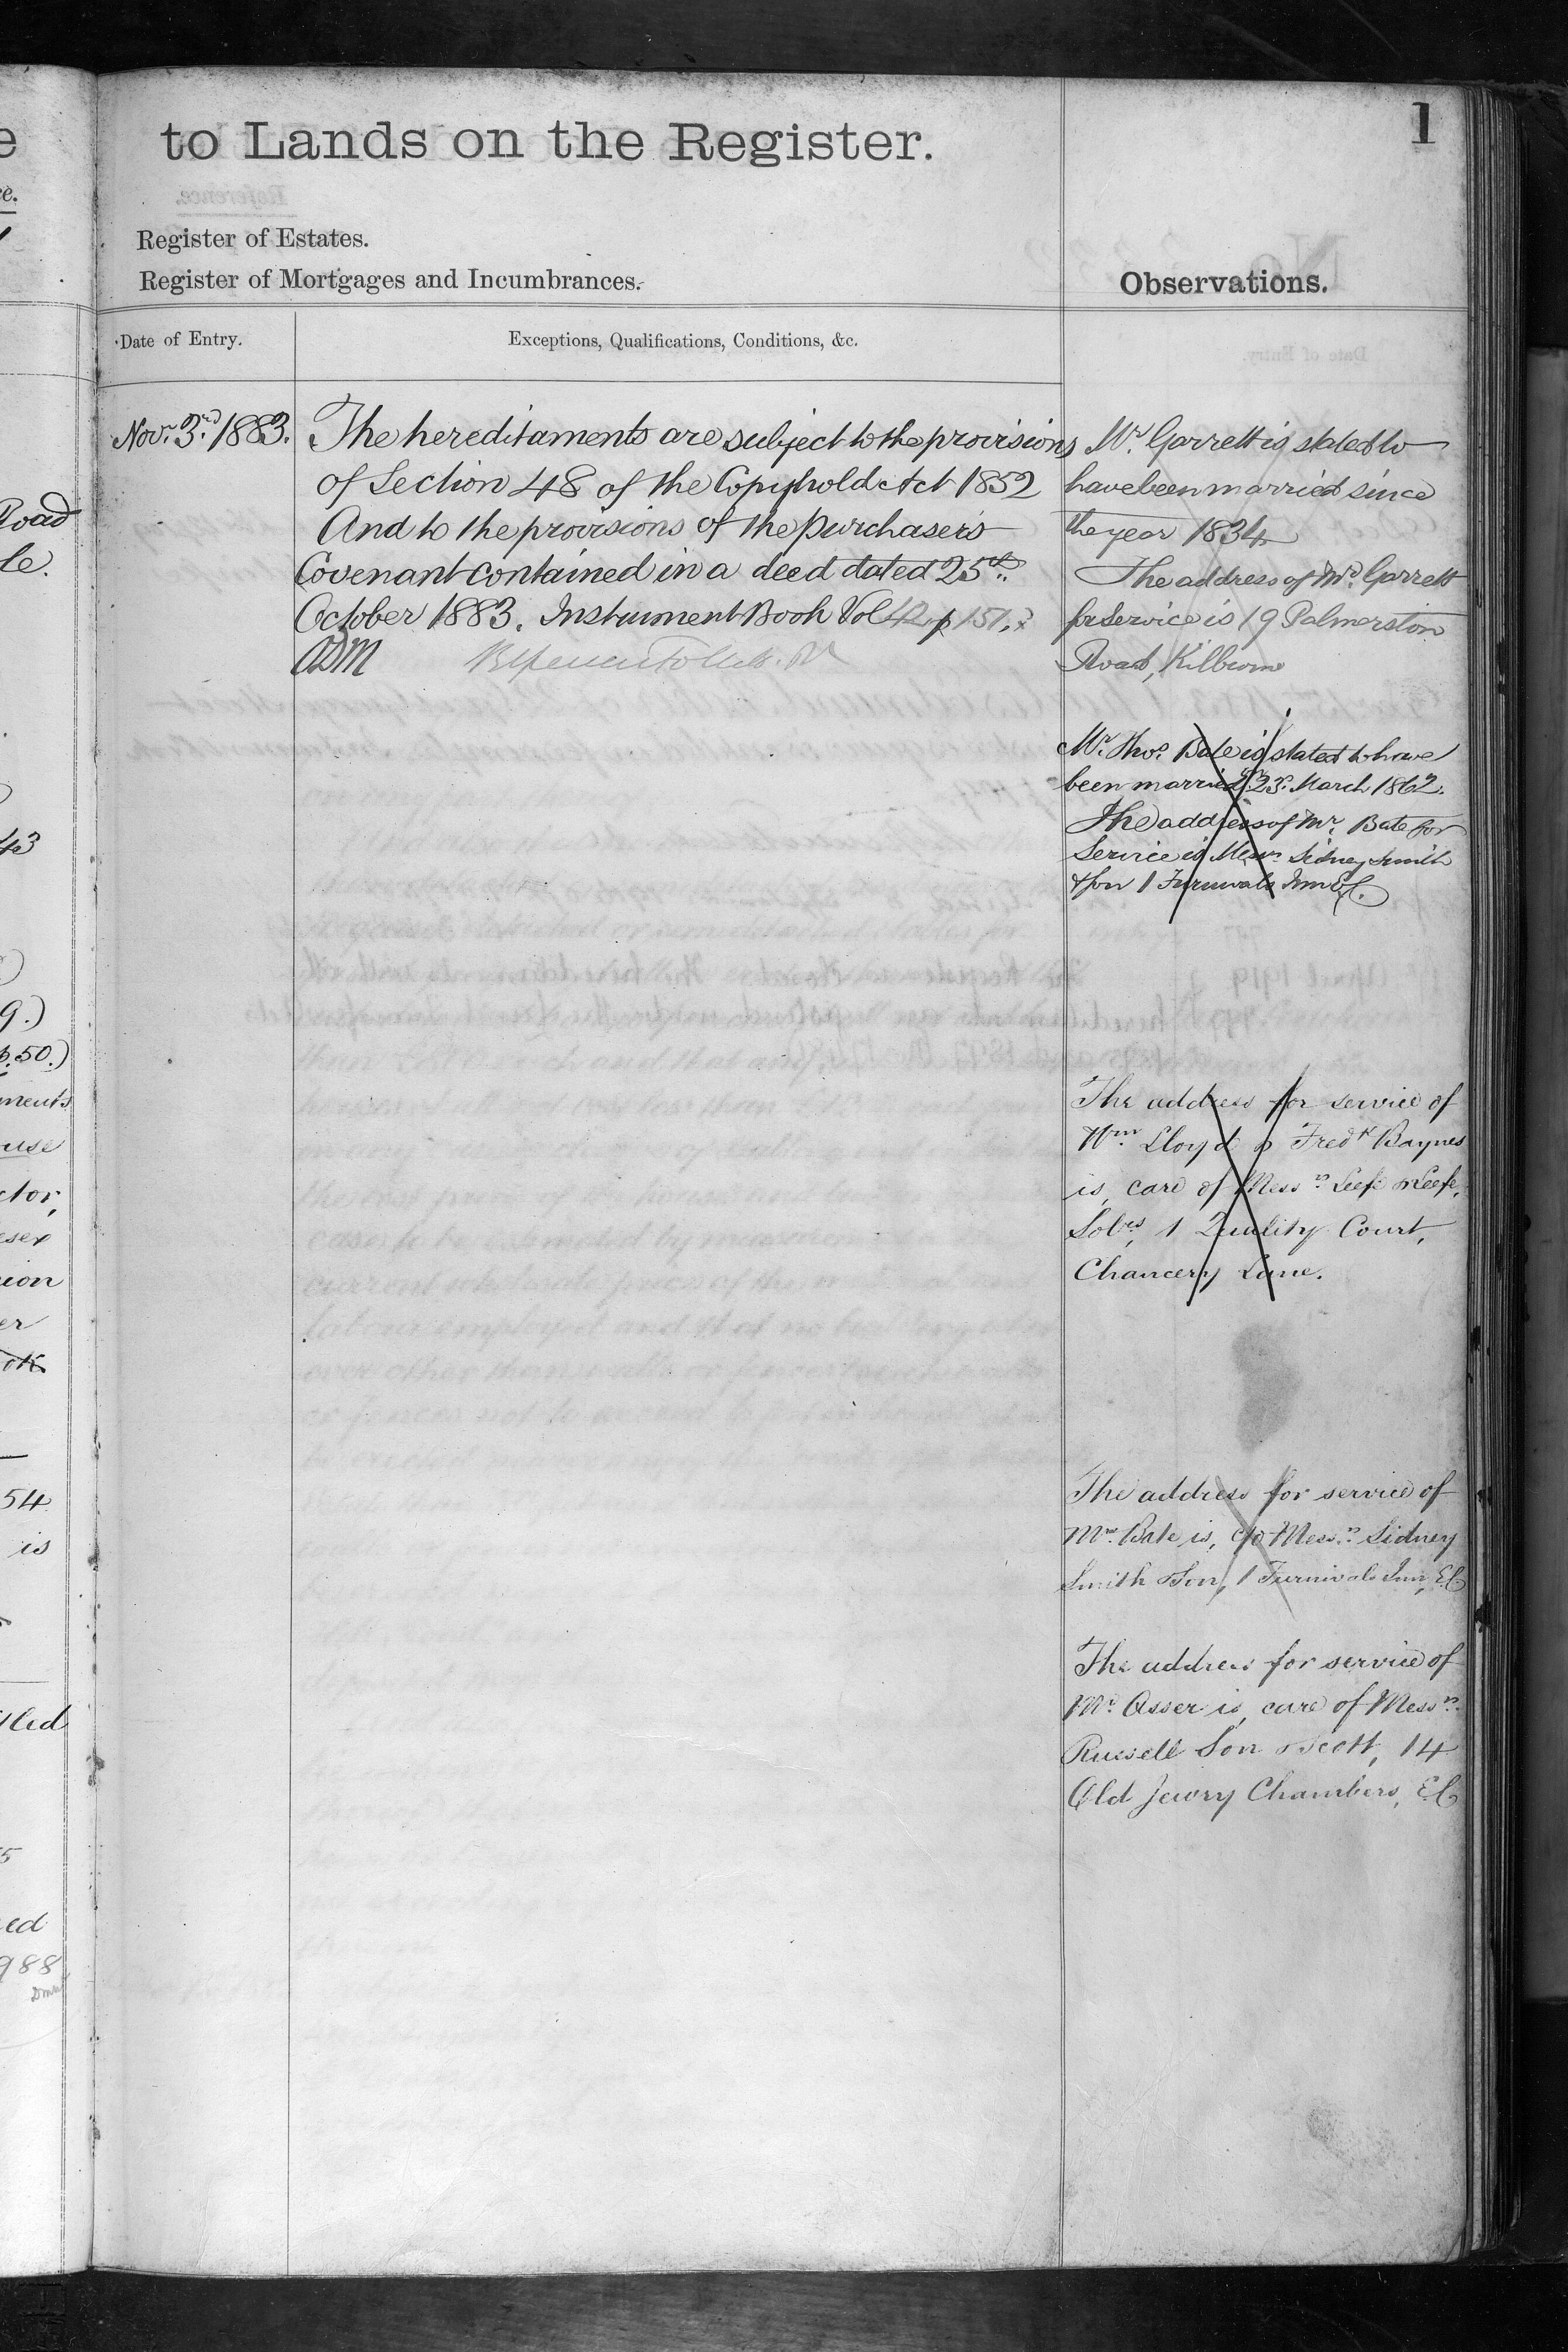 to Lands on the Register.
1
Register of Estates.
Register of Mortgages and Incumbrances.
Observations.
Date of Entry.
Exceptions, Qualifications, Conditions, &c.
Nov. 3rd 1883.
The hereditaments are subject to the provisions
of Section 48 of the Copyhold Act 1852
And to the provisions of the purchasers
Covenant contained in a deed dated 25th
October 1883. Instrument Book Vol 42 p 151.
ADM
Mr. Garrett is stated to
have been married since
the year 1834
The address of Mr. Garrett
for service is 19 Palmerston
Road, Kilburn
Mr. Thos. Bate is stated to have
been married on 23rd. March 1862.
The address of Mr. Bate for
Service is Messrs Sidney Smith
& Son 1 Furnivals Inn E.C.
The address for service of
Wm Lloyd & Fredk Baynes
is, care of Messrs Leefe & Leefe,
Solrs, 1 Quality Court,
Chancery Lane.
The address for service of
Mr. Bate is, c/o Messrs Sidney
Smith & Son, 1 Furnivals Inn, E.C
The address for service of
Mr. Asser is, care of Messrs
Russell Son & Scott, 14
Old Jewry Chambers, E.C
Road
le.
43
9.)
p. 50.)
ments
use
ctor,
esex
ion
er
ok
54
is
tled
5
ed
988